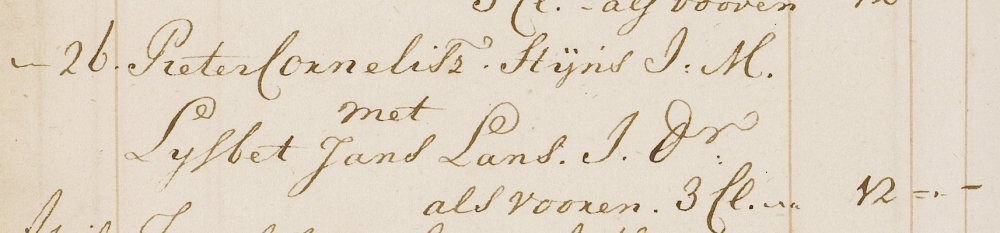 3 Cl. - als vooren 12
— 26. Pieter Cornelisz. Stÿns J: M.
met
Lysbet Jans Lans. J. Dr.
als vooren. 3 Cl. — 12 = . -